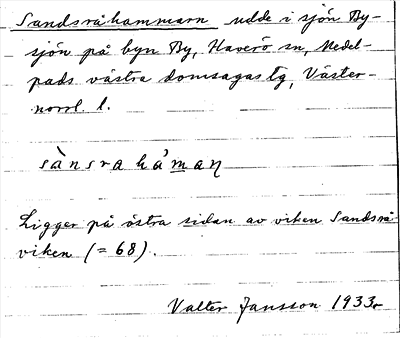 Sandsråhammarn udde i sjön By-
sjön på byn By, Haverö sn, Medel-
pads västra domsagas tg, Väster-
norrl l.
sànsrahámaɳ
Ligger på östra sidan av viken Sandsrå-
viken (= 68).
Valter Jansson 1933.